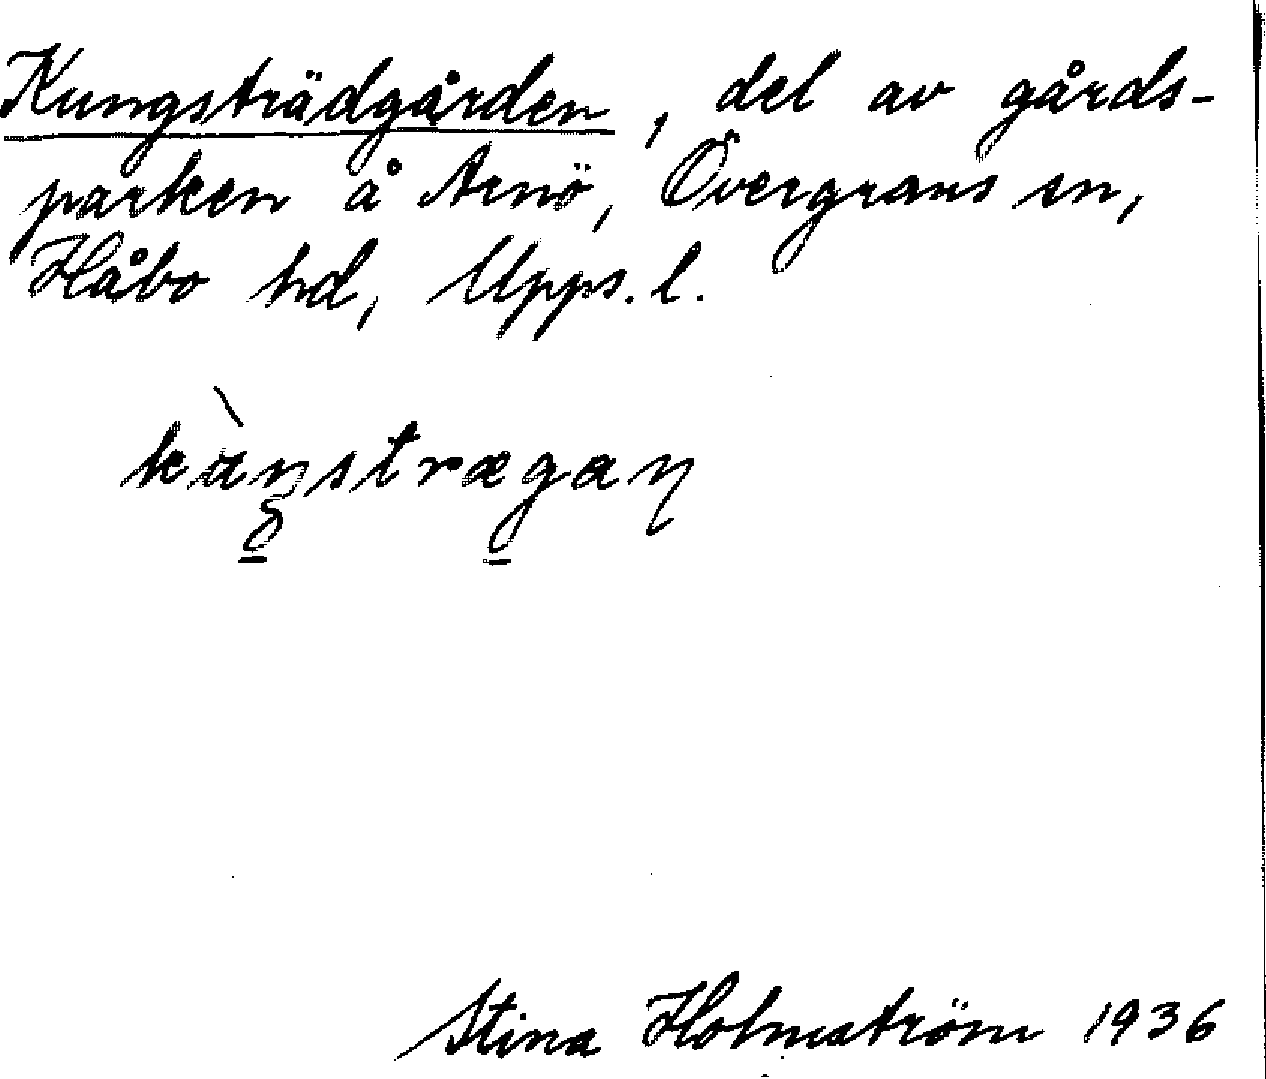 Kungsträdgården, del av gårds-
parken å Arnö, Övergrans sn,
Håbo hd, Upps. l.
Stina Holmström 1936